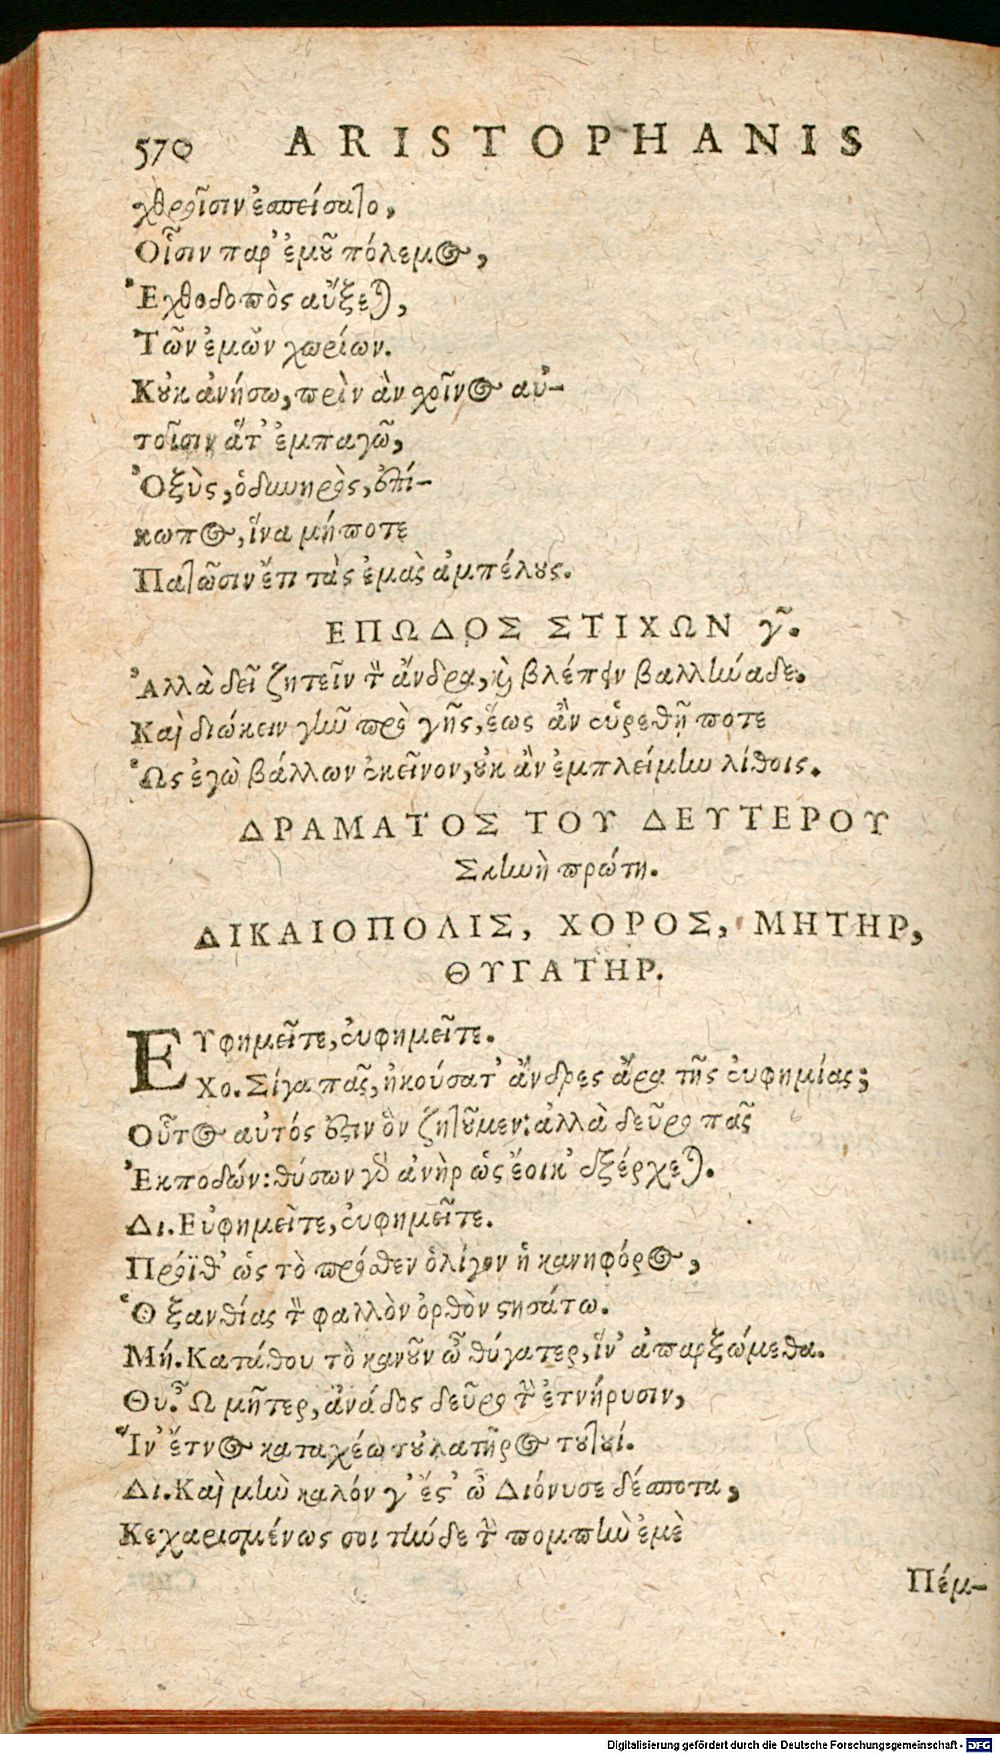 570 ARISTOPHANIS
χθροῖσιν ἐσπείσατο,
Οἷσιν παρ' ἐμοῦ πόλεμος,
Ἐχθοδοπὸς αὔξεται,
Τῶν ἐμῶν χωρίων.
Κοὐκ ἀνήσω, πρὶν ἂν χοῖνος αὐ-
τοῖσιν ἅτ' ἐμπαγῶ,
Ὀξὺς, ὀδυνηρὸς, ἐπί-
κωπος, ἵνα μήποτε
Πατῶσιν ἔτι τὰς ἐμὰς ἀμπέλους.
ΕΠΩΔΟΣ ΣΤΙΧΩΝ γ͂.
Ἀλλὰ δεῖ ζητεῖν τὸν ἄνδρα, καὶ βλέπειν βαλλήναδε.
Καὶ διώκειν γῆν πρὸ γῆς, ἕως ἂν εὑρεθῇ ποτε
Ὡς ἐγὼ βάλλων ἐκεῖνον, οὐκ ἂν ἐμπλείμην λίθοις.
ΔΡΑΜΑΤΟΣ ΤΟΥ ΔΕΥΤΕΡΟΥ
Σκηνὴ πρώτη.
ΔΙΚΑΙΟΠΟΛΙΣ, ΧΟΡΟΣ, ΜΗΤΗΡ,
ΘΥΓΑΤΗΡ.
ΕΥφημεῖτε, εὐφημεῖτε.
Χο. Σίγα πᾶς, ἠκούσατ' ἄνδρες ἆρα τῆς εὐφημίας;
Οὗτος αὐτός ἐστιν ὃν ζητοῦμεν: ἀλλὰ δεῦρο πᾶς
Ἐκποδών: θύσων γὰρ ἀνὴρ ὡς ἔοικ' ἐξέρχεται.
Δι. Εὐφημεῖτε, εὐφημεῖτε.
Πρόϊθ' ὡς τὸ πρόσθεν ὀλίγον ἡ κανηφόρος,
Ὁ ξανθίας τὸν φαλλὸν ὀρθὸν στησάτω.
Μή. Κατάθου τὸ κανοῦν ὦ θύγατερ, ἵν' ἀπαρξώμεθα.
Θυ. Ὦ μῆτερ, ἀνάδος δεῦρο τὴν ἐτνήρυσιν,
Ἵν' ἔτνος καταχέω τοὐλατῆρος τουτουί.
Δι. Καὶ μὴν καλόν γ' ἔστ' ὦ Διόνυσε δέσποτα,
Κεχαρισμένως σοι τήνδε τὴν πομπὴν ἐμὲ
Πέμ-
Digitalisierung gefördert durch die Deutsche Forschungsgemeinschaft - DFG